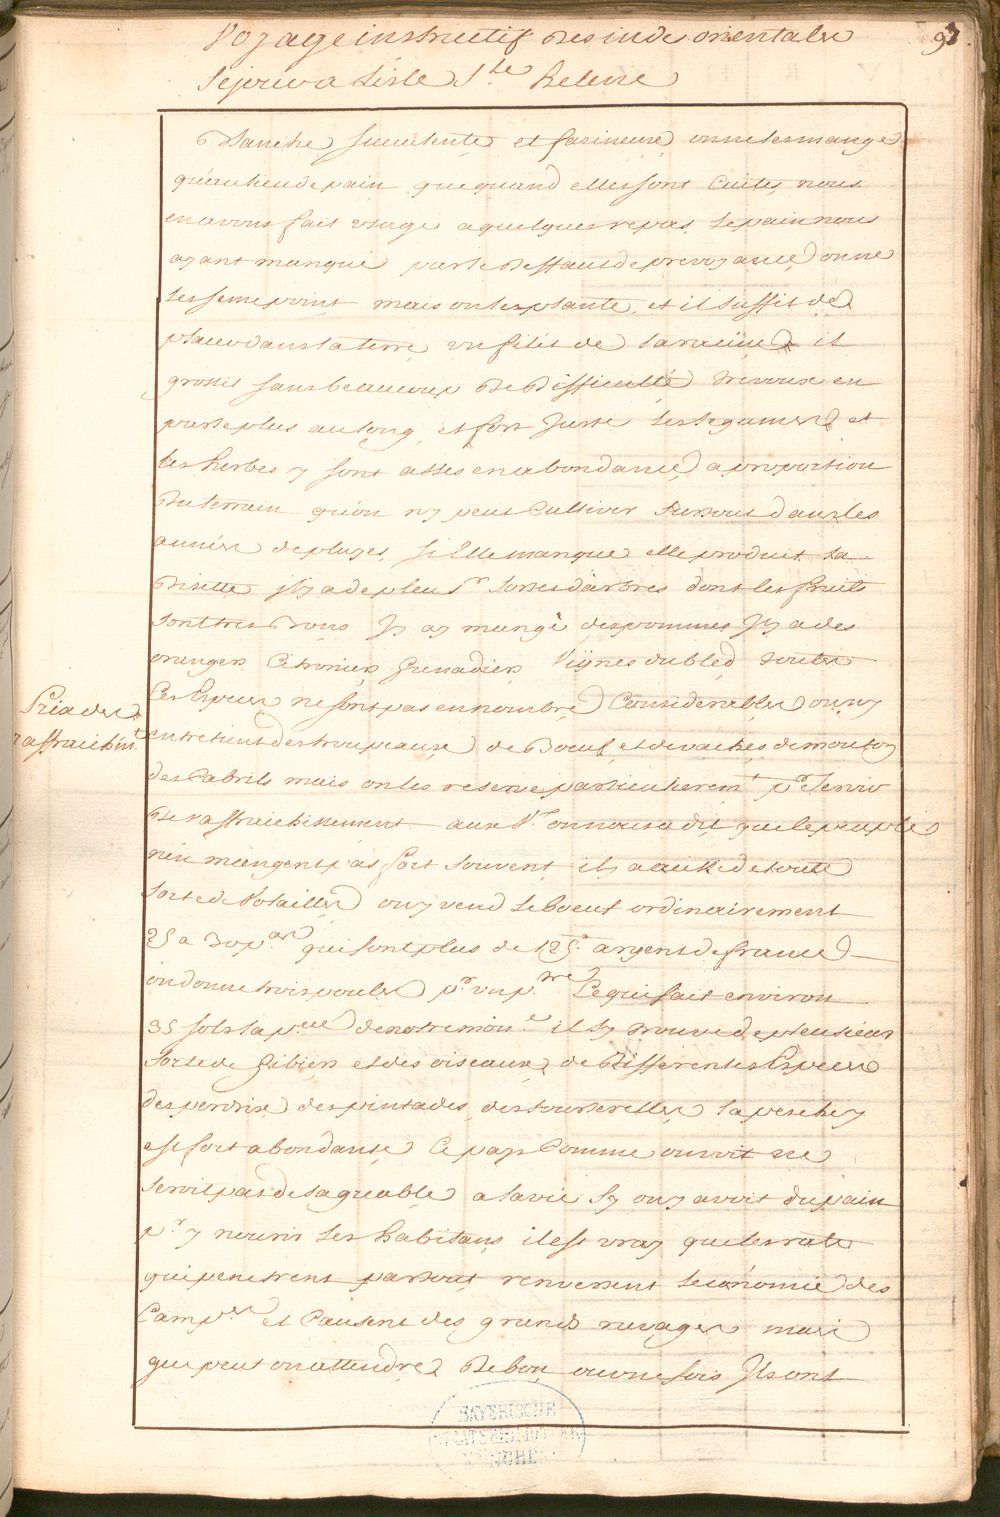 Voyage instructif Des inde orientales
93
Sejour a Lisle Ste helene
Blanche succulente et farineuse on ne les mange
qu'au lieu de pain que quand elles sont Cuites nous
en avons fait usage a quelques repas Le pain nous
ayant manqué par le Deffaut de prevoyance on ne
Les seme point mais on les plante, et il suffit de
placer dans la terre un filet de La racine il
grossit sans beaucoup De Difficulté Trevoux en
parle plus au long, et fort Juste Les legumes et
Les herbes y sont asses en abondance a proportion
Du terrain qu'on ny peut Cultiver surtout dans les
années de pluyes Si Elle manque elle produit La
Disette il y a de pleusrs sortes d'arbres dont les fruits
sont tres Bons Jy ay mangé des pommes Jl y a des
orangers Citroniers Grenadiers Vignes du bled toutes
Ces Especes ne sont pas en nombre Considerables on y
Prix des
rafraichint
entretient des troupeaux de Boeuf et de vaches de mouton
des Cabrits mais on les reserve particulieremt pr Servir
De raffraichissement aux Vx on nous a dit que le peuple
n'en mangent pas fort souvent ils a aussi de toute
sorte de Volailles on y vend Le boeuf ordinairement
25 a 30 pres qui sont plus de 125 argent de france
on donne trois poules pr une ptre Ce qui fait environ
35 sols la pce de notre mone il sy trouve de pleusieurs
sorte de Gibiers et des oiseaux de Differentes Especes
des perdrix des pintades des tourterelles La pesche y
est fort abondante Ce pays Comme on voit ne
seroit pas desagreable a la vie sy on y avoit du pain
pr y nourir Les habitans il est vray que les rats
qui penetrent partout renversent Leconomie des
Campes et Causent des grands ravages mais
que peut on attendre De bon ou une fois Jls ont
BAYERISCHE
STAATSBIBLIOTHEK
MÜNCHEN